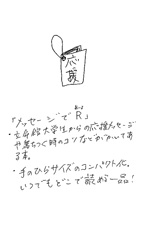 応援
「メッセージでR」
・立命館大学生からの応援メッセージ
や落ちつく時のコツなどがかいてあ
る本。
・手のひらサイズのコンパクト化。
いつでもどこで読める一品!